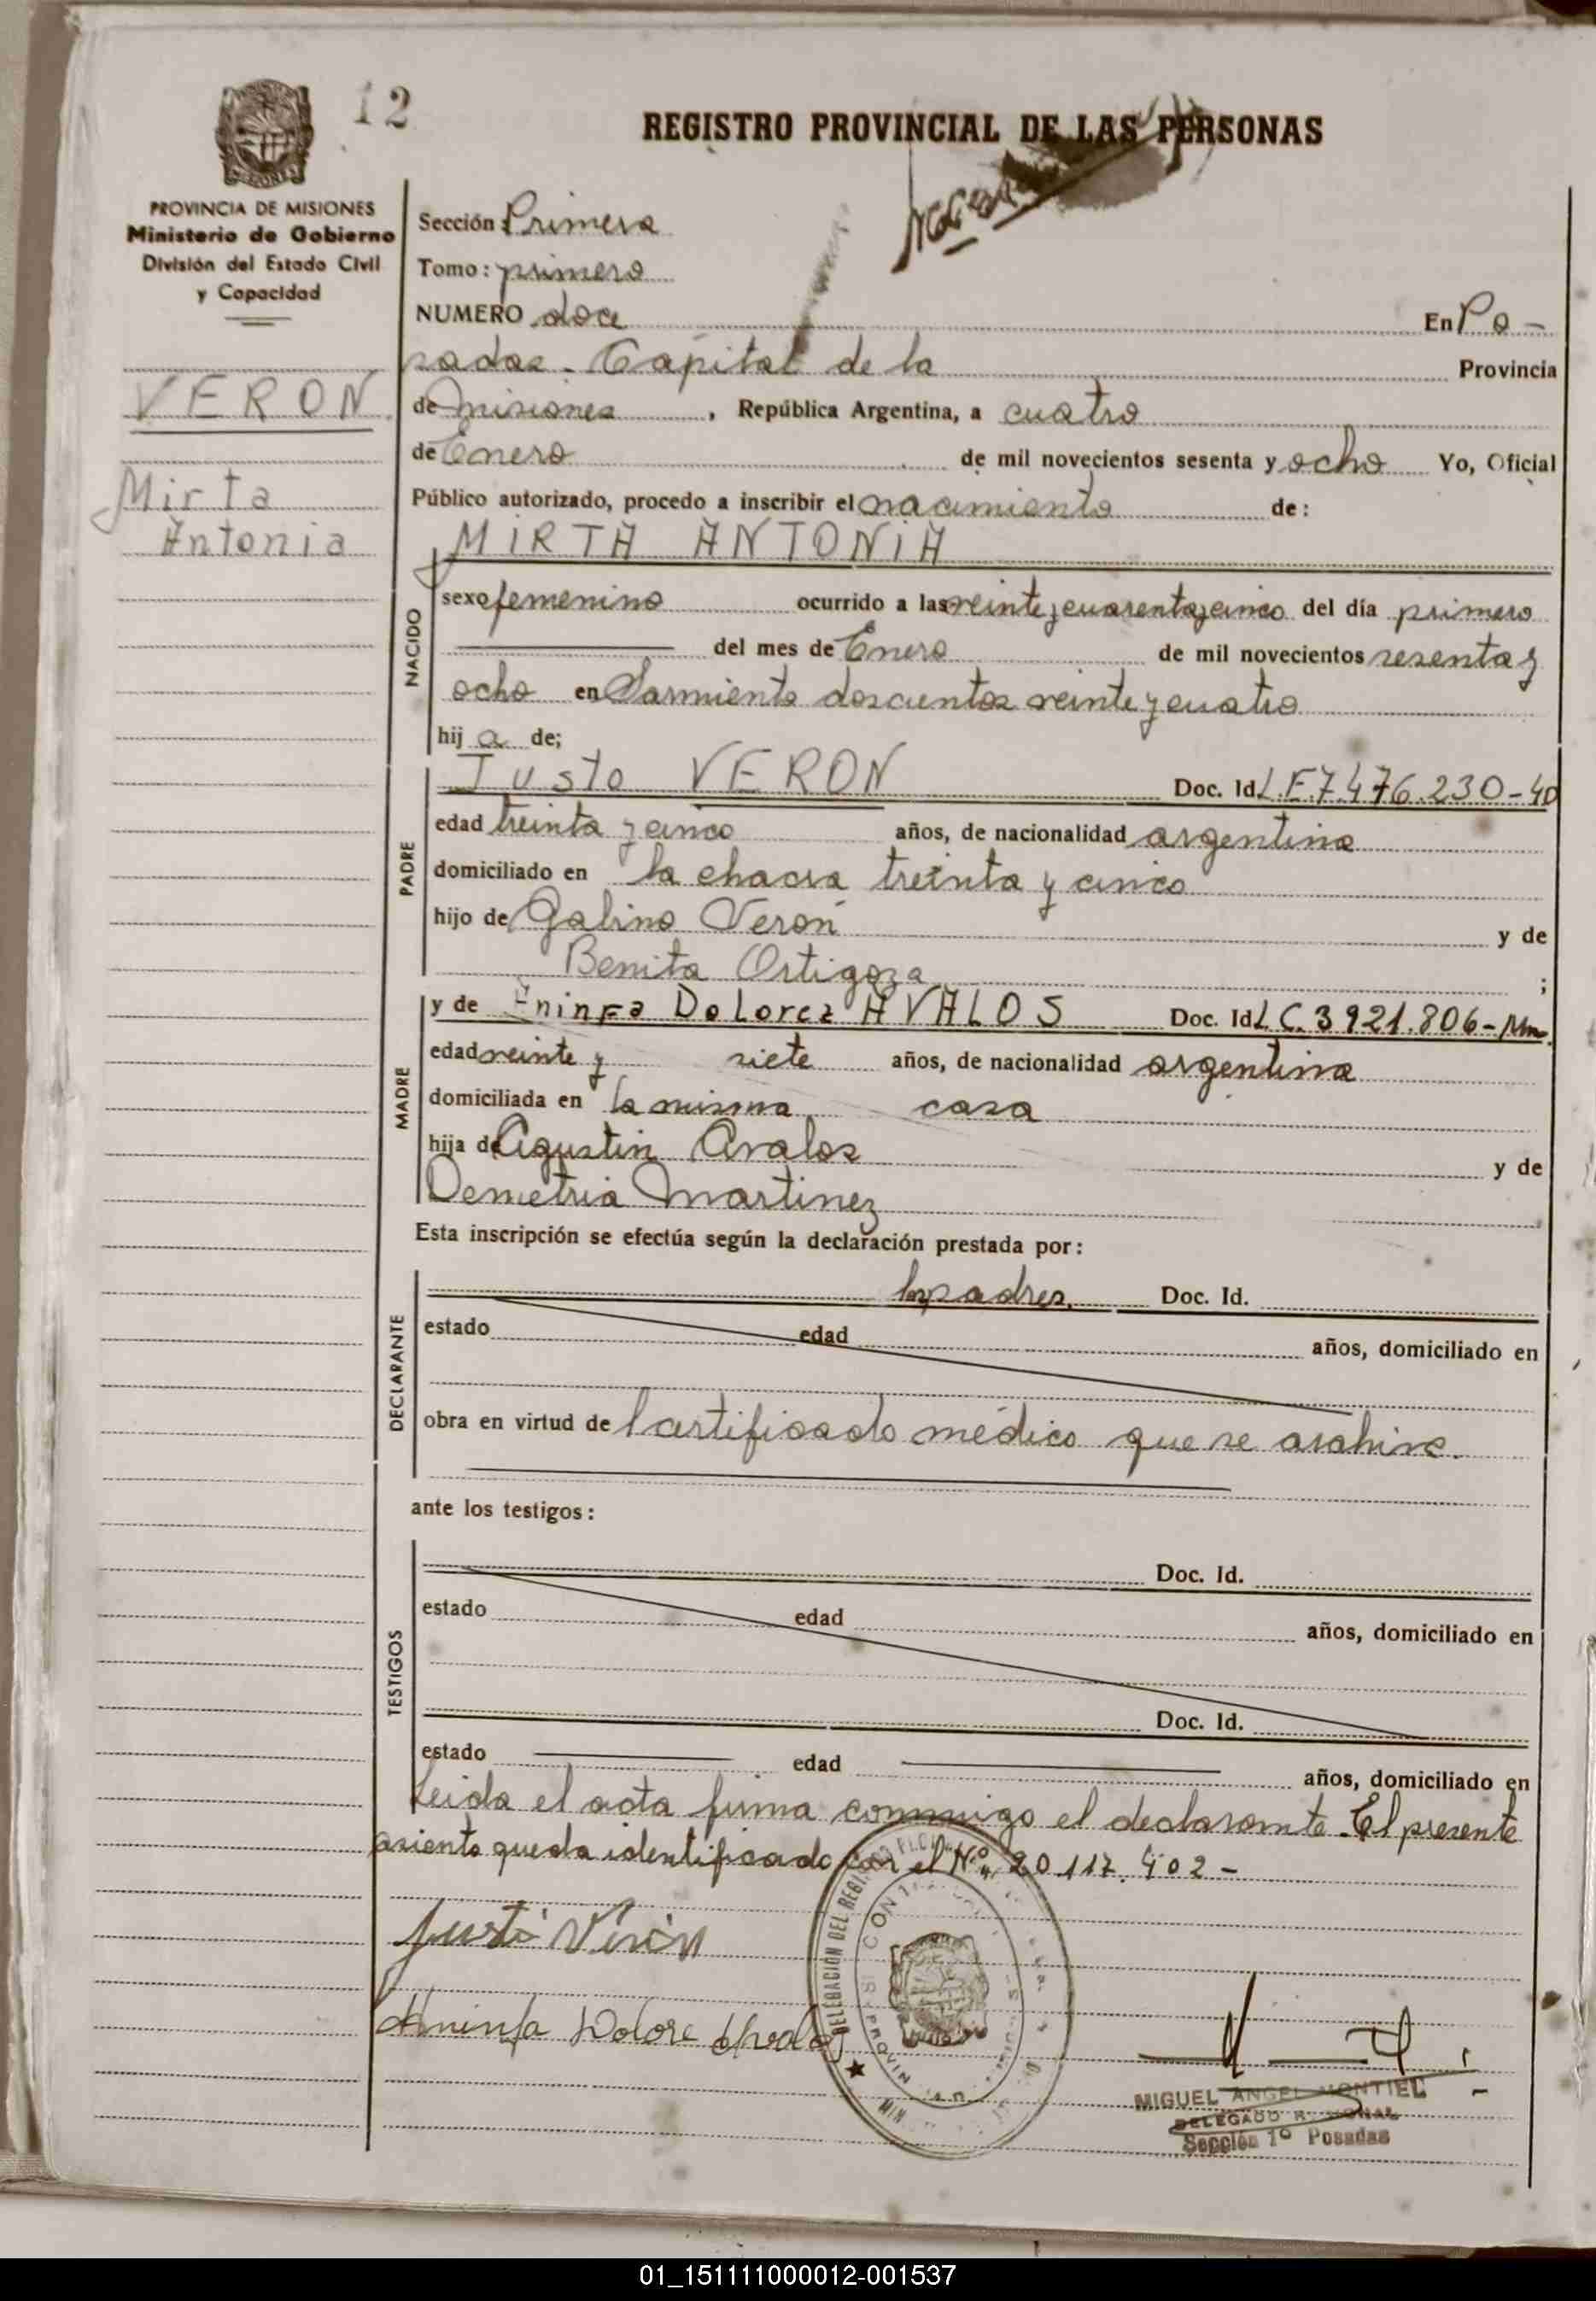 12
REGISTRO PROVINCIAL DE LAS PERSONAS
PROVINCIA DE MISIONES
Ministerio de Gobierno
División del Estado Civil
y Capacidad
VERON
Mirta
Antonia
Sección: Primera
Tomo: primero
NUMERO doce En Po-
sadas - Capital de la Provincia
de Misiones, República Argentina, a cuatro
de Enero de mil novecientos sesenta y ocho Yo, Oficial
Público autorizado, procedo a inscribir el nacimiento de:
MIRTA ANTONIA
NACIDO
sexo femenino ocurrido a las veinte y cuarenta y cinco del día primero
del mes de Enero de mil novecientos sesenta y
ocho en Sarmiento doscientos veinte y cuatro
hija de;
PADRE
Justo VERON Doc. Id. L.E. 7.476.230-40
edad treinta y cinco años, de nacionalidad argentina
domiciliado en la chacra treinta y cinco
hijo de Gabino Veron y de
Benita Ortigoza ;
MADRE
y de Dolores AVALOS Doc. Id. L.C. 3.921.806-Mn.
edad veinte y siete años, de nacionalidad argentina
domiciliada en la misma casa
hija de Agustin Avalos y de
Demetria Martinez
Esta inscripción se efectúa según la declaración prestada por:
DECLARANTE
los padres. Doc. Id.
estado edad años, domiciliado en
obra en virtud de certificado médico que se archiva.
ante los testigos:
TESTIGOS
Doc. Id.
estado edad años, domiciliado en
Doc. Id.
estado edad años, domiciliado en
Leida el acta firma conmigo el declarante. El presente
asiento queda identificado con el Nº 20.117.402-
Justo Verón
Dolore Avalo
DELEGACIÓN DEL REGISTRO
MIGUEL ANGEL MONTIEL
DELEGADO REGIONAL
Sección 1º Posadas
01_151111000012-001537